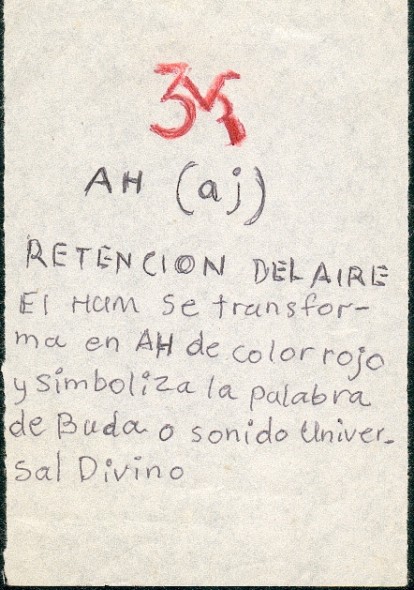 AH (aj)
RETENCION DEL AIRE
El HUM se transfor-
ma en AH de color rojo
y simboliza la palabra
de Buda o sonido Univer-
sal Divino